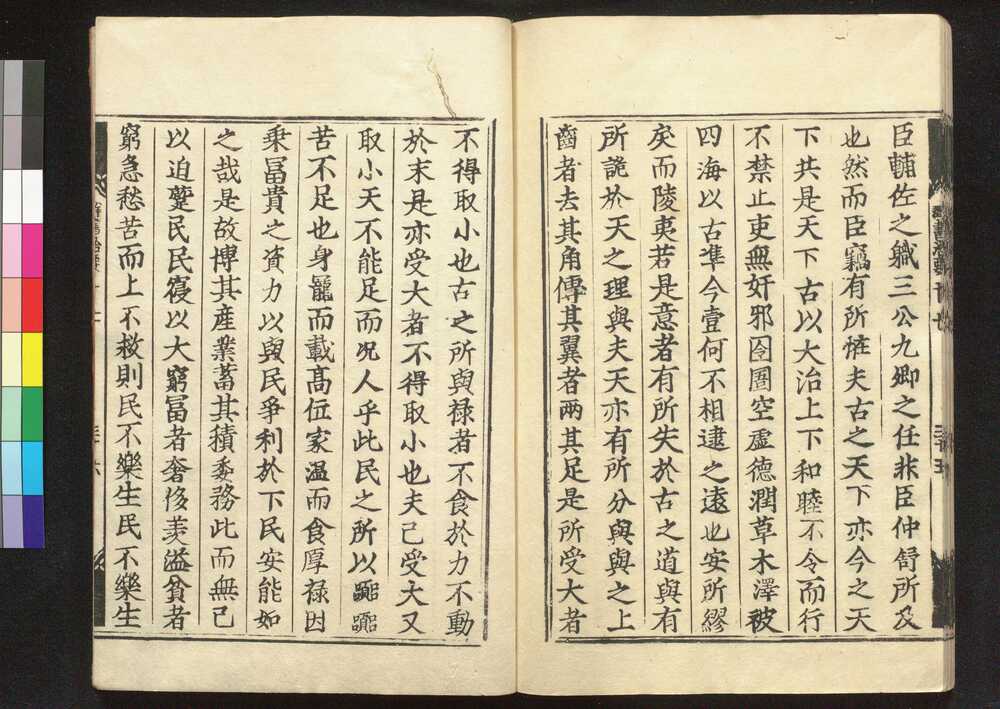 臣輔佐之職三公九卿之任非臣仲舒所及
也然而臣竊有所恠夫古之天下亦今之天
下共是天下古以大治上下和睦不令而行
不禁止吏無奸邪囹圄空虛德潤草木澤被
四海以古準今壹何不相逮之遠也安所繆
矣而陵夷若是意者有所失於古之道與有
所詭於天之理與夫天亦有所分與與之上
齒者去其角傳其翼者兩其足是所受大者
不得取小也古之所與祿者不食於力不動
於末是亦受大者不得取小也夫已受大又
取小天不能足而况人乎此民之所以嚻嚻
苦不足也身寵而載高位家温而食厚祿因
乗冨貴之資力以與民爭利於下民安能如
之哉是故博其產業蓄其積委務此而無已
以迫蹙民民寖以大窮冨者奢侈羡溢貧者
窮急愁苦而上不救則民不樂生民不樂生